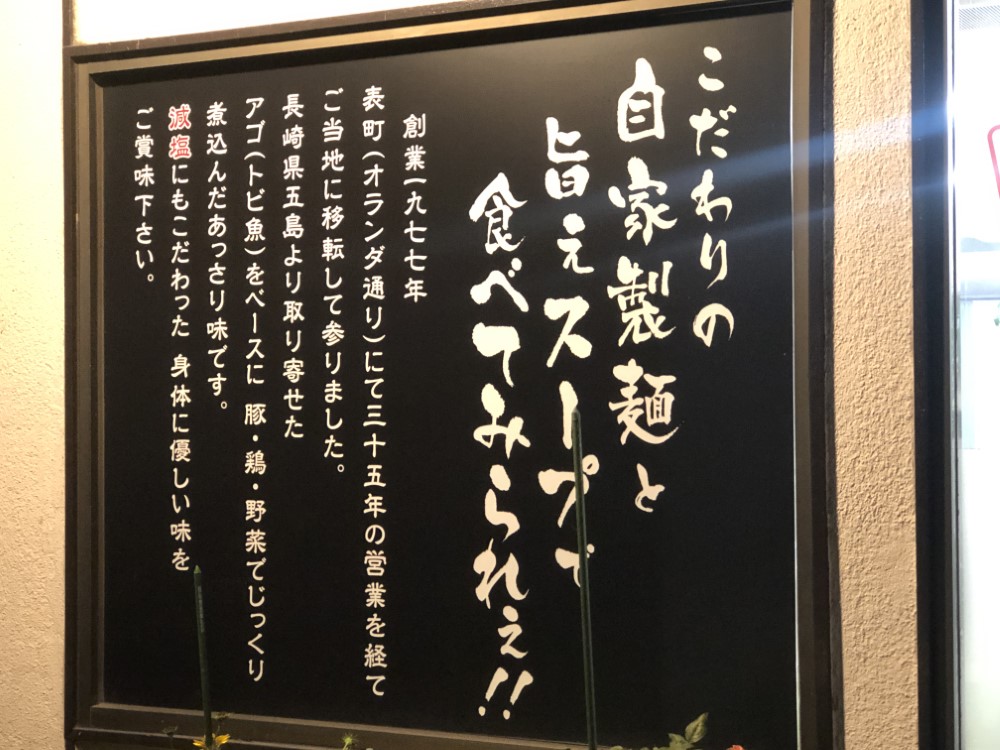 こだわりの
自家製麺と
旨えスープで
食べてみられえ!!
創業一九七七年
表町(オランダ通り)にて三十五年の営業を経て
ご当地に移転して参りました。
長崎県五島より取り寄せた
アゴ(トビ魚)をベースに 豚・鶏・野菜でじっくり
煮込んだあっさり味です。
減塩にもこだわった 身体に優しい味を
ご賞味下さい。